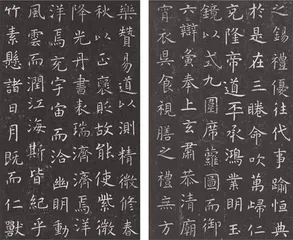 之錫禮優往代事踰恒典
於是在三眷命吹萬歸仁
克隆帝道丕承鴻業明玉
鏡以式九圍席蘿圖而御
六辯寅奉上玄肅恭清廟
宵衣昃食視膳之禮無方
樂贊易道以測精微修春
秋以正褒貶故能使紫微
降光丹書表瑞濟濟焉洋
洋焉充宇宙而洽幽明動
風雲而潤江海斯皆紀乎
竹素懸諸日月既而仁獸